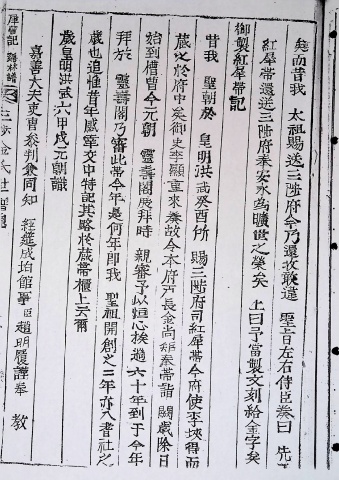 矣而昔我 太祖賜送三陟府今乃還收敢達 聖旨左右侍臣奏曰 先王
紅犀帶還送三陟府乘安永爲曠世之榮矣 上曰予當製文刻給金字矣
御製紅犀帶記
昔我 聖朝於 皇明洪武癸酉所 賜三陟府司紅犀帶今府使李埉得而
藏之於府中矣御史李顯重來奏故今本府戶長金尚 奉帶詣 闕歲除日
始到槽曹今元朝 靈壽閣展拜時 親審予以烜心挨過六十年到于今年
拜於 靈壽閣乃審此帶今年是何年卽我 聖祖開創之二年亦入耆社之
歲也追惟昔年感 交中特記其略於藏帶櫃上云爾
歲皇明洪武六甲戌元朝識
嘉善大夫吏曹參判兼同知 經筵成均館事臣趙明履謹奉 教